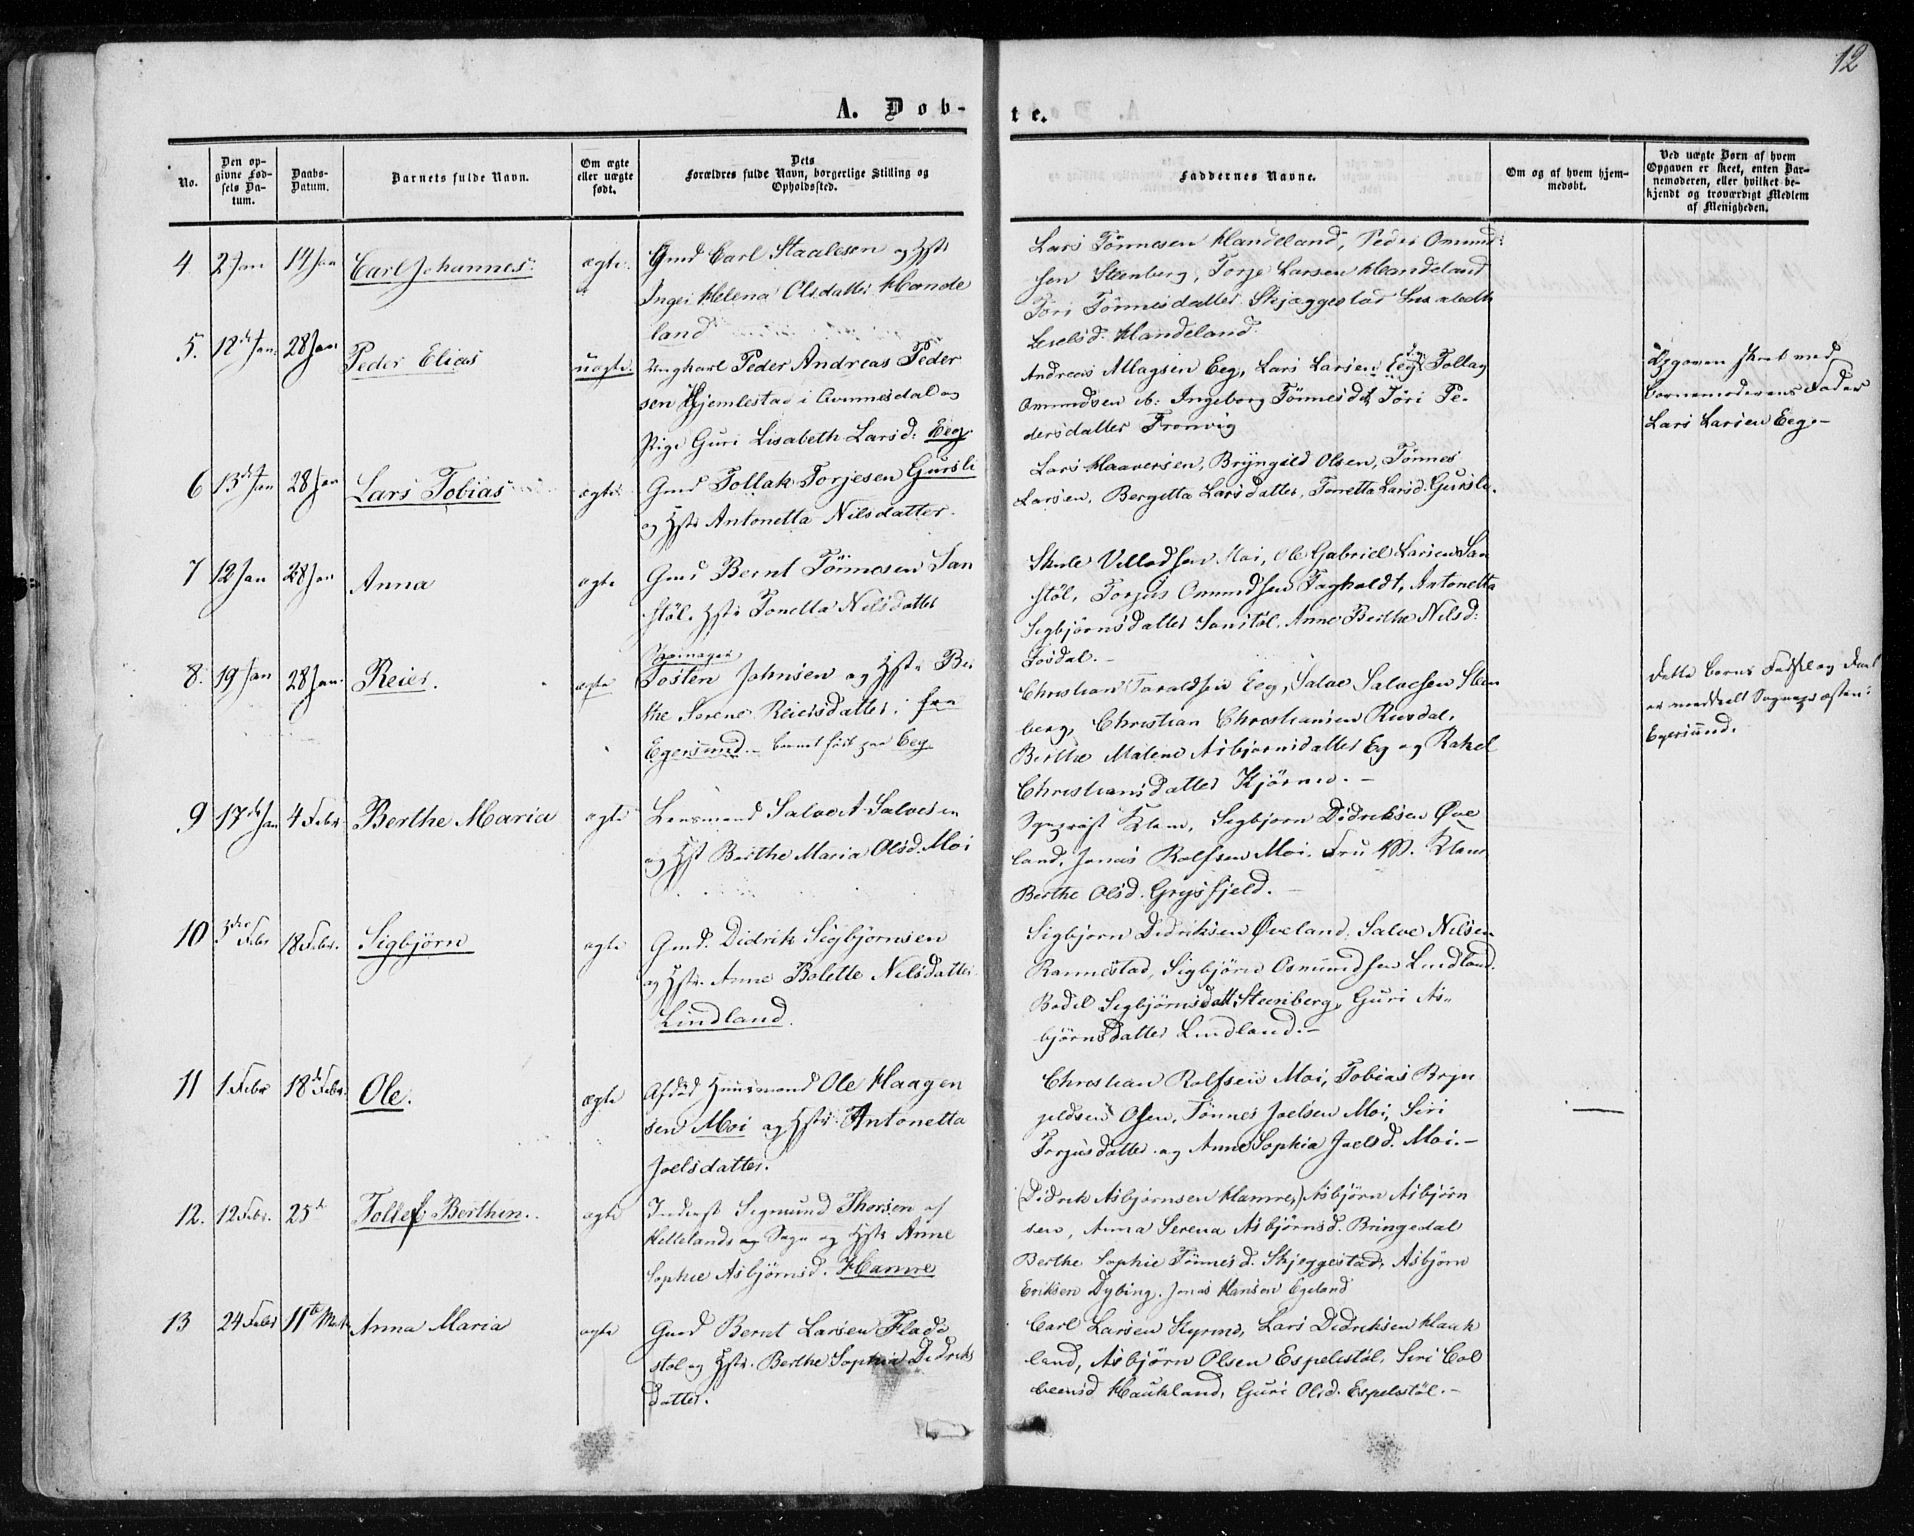 12
A. Døb-
te.
No.
Den op-
givne Fød-
sels Da-
tum.
Daabs-
Datum.
Barnets fulde Navn.
Om ægte
eller uægte
født.
Dets
Forældres fulde Navn, borgerlige Stilling og
Opholdssted.
Faddernes Navne.
Om og af hvem hjem-
medøbt.
Ved uægte Børn af hvem
Opgaven er skeet, enten Bar-
nemoderen, eller hvilket be-
kjendt og troværdigt Medlem
af Menigheden.
4 2 Jan 14 Jan Carl Johannes ægte
Gmd Carl Staalesen og Hstr
Inger Helena Olsdatter Hande
land
Lars Tønnesen Handeland, Peder Omund-
sen Steenberg, Torje Larsen Handeland
Tøri Tønnesdatter Skjæggestad
Handeland
5. 12 Jan 28 Jan Peder Elias uægte
Ungkarl Peder Andreas Peder
sen Hjemlestad i Qvinnesdal og
Pige Guri Lisabeth Larsd: Eeg
Andreas Magsen Eeg, Lars Larsen Eeg, Tollag
Omundsen ib: Ingeborg Tønnesdt, Tøri Pe-
dersdatter Tronvig
Opgaven skeet ved
Barnemoderens Fader
Lars Larsen Eeg.-
6 13 Jan 28 Jan Lars Tobias ægte
Gmd Tollak Torjesen Gursli
og Hstr Antonetta Nilsdatter.
Lars Haaversen, Bryngild Olsen, Tønnes
Larsen, Bergetta Larsdatter, Torretta Larsd. Gursli.
7 12 Jan 28 Jan Anna ægte
Gmd Bernt Tønnesen San
støl. Hstr Tonetta Nilsdatter
Skule Villadsen Moi, Ole Gabriel Larsen San
støl, Torjus Omundsen Fagholdt, Antonetta
Sigbjørnsdatter Sanstøl, Anne Berthe Nilsd:
Fosdal.-
8. 19 Jan 28 Jan. Reier. ægte
Tosten Johnsen og Hstr Ber
the Serene Reiersdatter. fra
Egersund.- barnet født paa Eeg
Christian Taraldsen Eeg, Salve Salvesen Steen
berg, Christian Christiansen Rusdal,
Berthe Malene Asbjørnsdatter Eg og Rakel
Christiansdatter Kjørmo.-
dette barns Fødsel og Daab
er meddelt Sognepræsten i
Egersund.
9 17 Jan 4 Febr Berthe Maria ægte
Lensmand Salve T. Salvesen
og Hst Berthe Maria Olsd. Moi
Sognepræst Klem, Sigbjørn Didriksen Øve
land, Jonas Rolfsen Moi. Fru M. Klem
Berthe Olsd. Grysfjeld.-
10 3die Febr 18 Febr. Sigbjørn ægte
Gmd. Didrik Sigbjørnsen
og Hstr. Anne Bolette Nilsdatter
Lindland.
Sigbjørn Didriksen Øveland, Salve Nilsen
Rannestad, Sigbjørn Osmundsen Lindland.
Bodil Sigbjørnsdatt Steenberg, Guri As-
bjørnsdatter Lindland.-
11 1 Febr 18de Febr. Ole. ægte
Afdød Huusmand Ole Haagen
sen Moi og Hstr Antonetta
Joelsdatter.
Christian Rolfsen Moi, Tobias Bryn
jeldsen Osen, Tønnes Joelsen Moi, Siri
Torjusdatter og Anne Sophia Joelsd. Moi.-
12. 12 Febr. 25d Tollef Berthin. ægte
Inderst Sigmund Thorsen af
Hellelands og Sogn og Hstr Anne
Sophie Asbjørnsd. Hamre
(Didrik Asbjørnsen Hamre,) Asbjørn Asbjørn
sen, Anna Serena Asbjørnsd. Bringedal
Berthe Sophie Tønnesd. Skjeggestad, Asbjørn
Eriksen Dybing. Jonas Hansen Egeland
13 24 Febr 11te Mart Anna Maria ægte
Gmd Bernt Larsen Flade
støl og Hstr. Berthe Sophia Didriks
datter.
Carl Larsen, Lars Didriksen Hauk
land, Asbjørn Olsen Espelistøl, Siri Col
beensd Haukland, Guri Olsd. Espelistøl.-